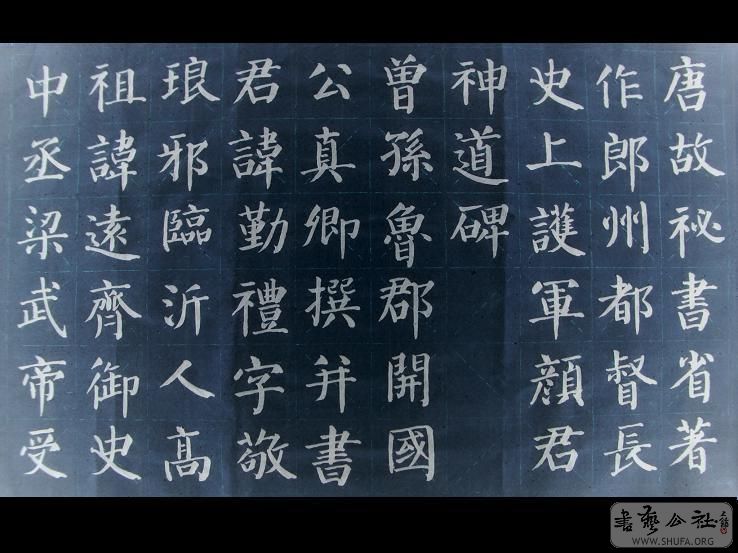 唐故祕書省著
作郎州都督長
史上護軍顔君
神道碑
曾孫魯郡開國
公真卿撰并書
君諱勤禮字敬
琅邪臨沂人高
祖諱遠齊御史
中丞梁武帝受
書藝公社
WWW.SHUFA.ORG